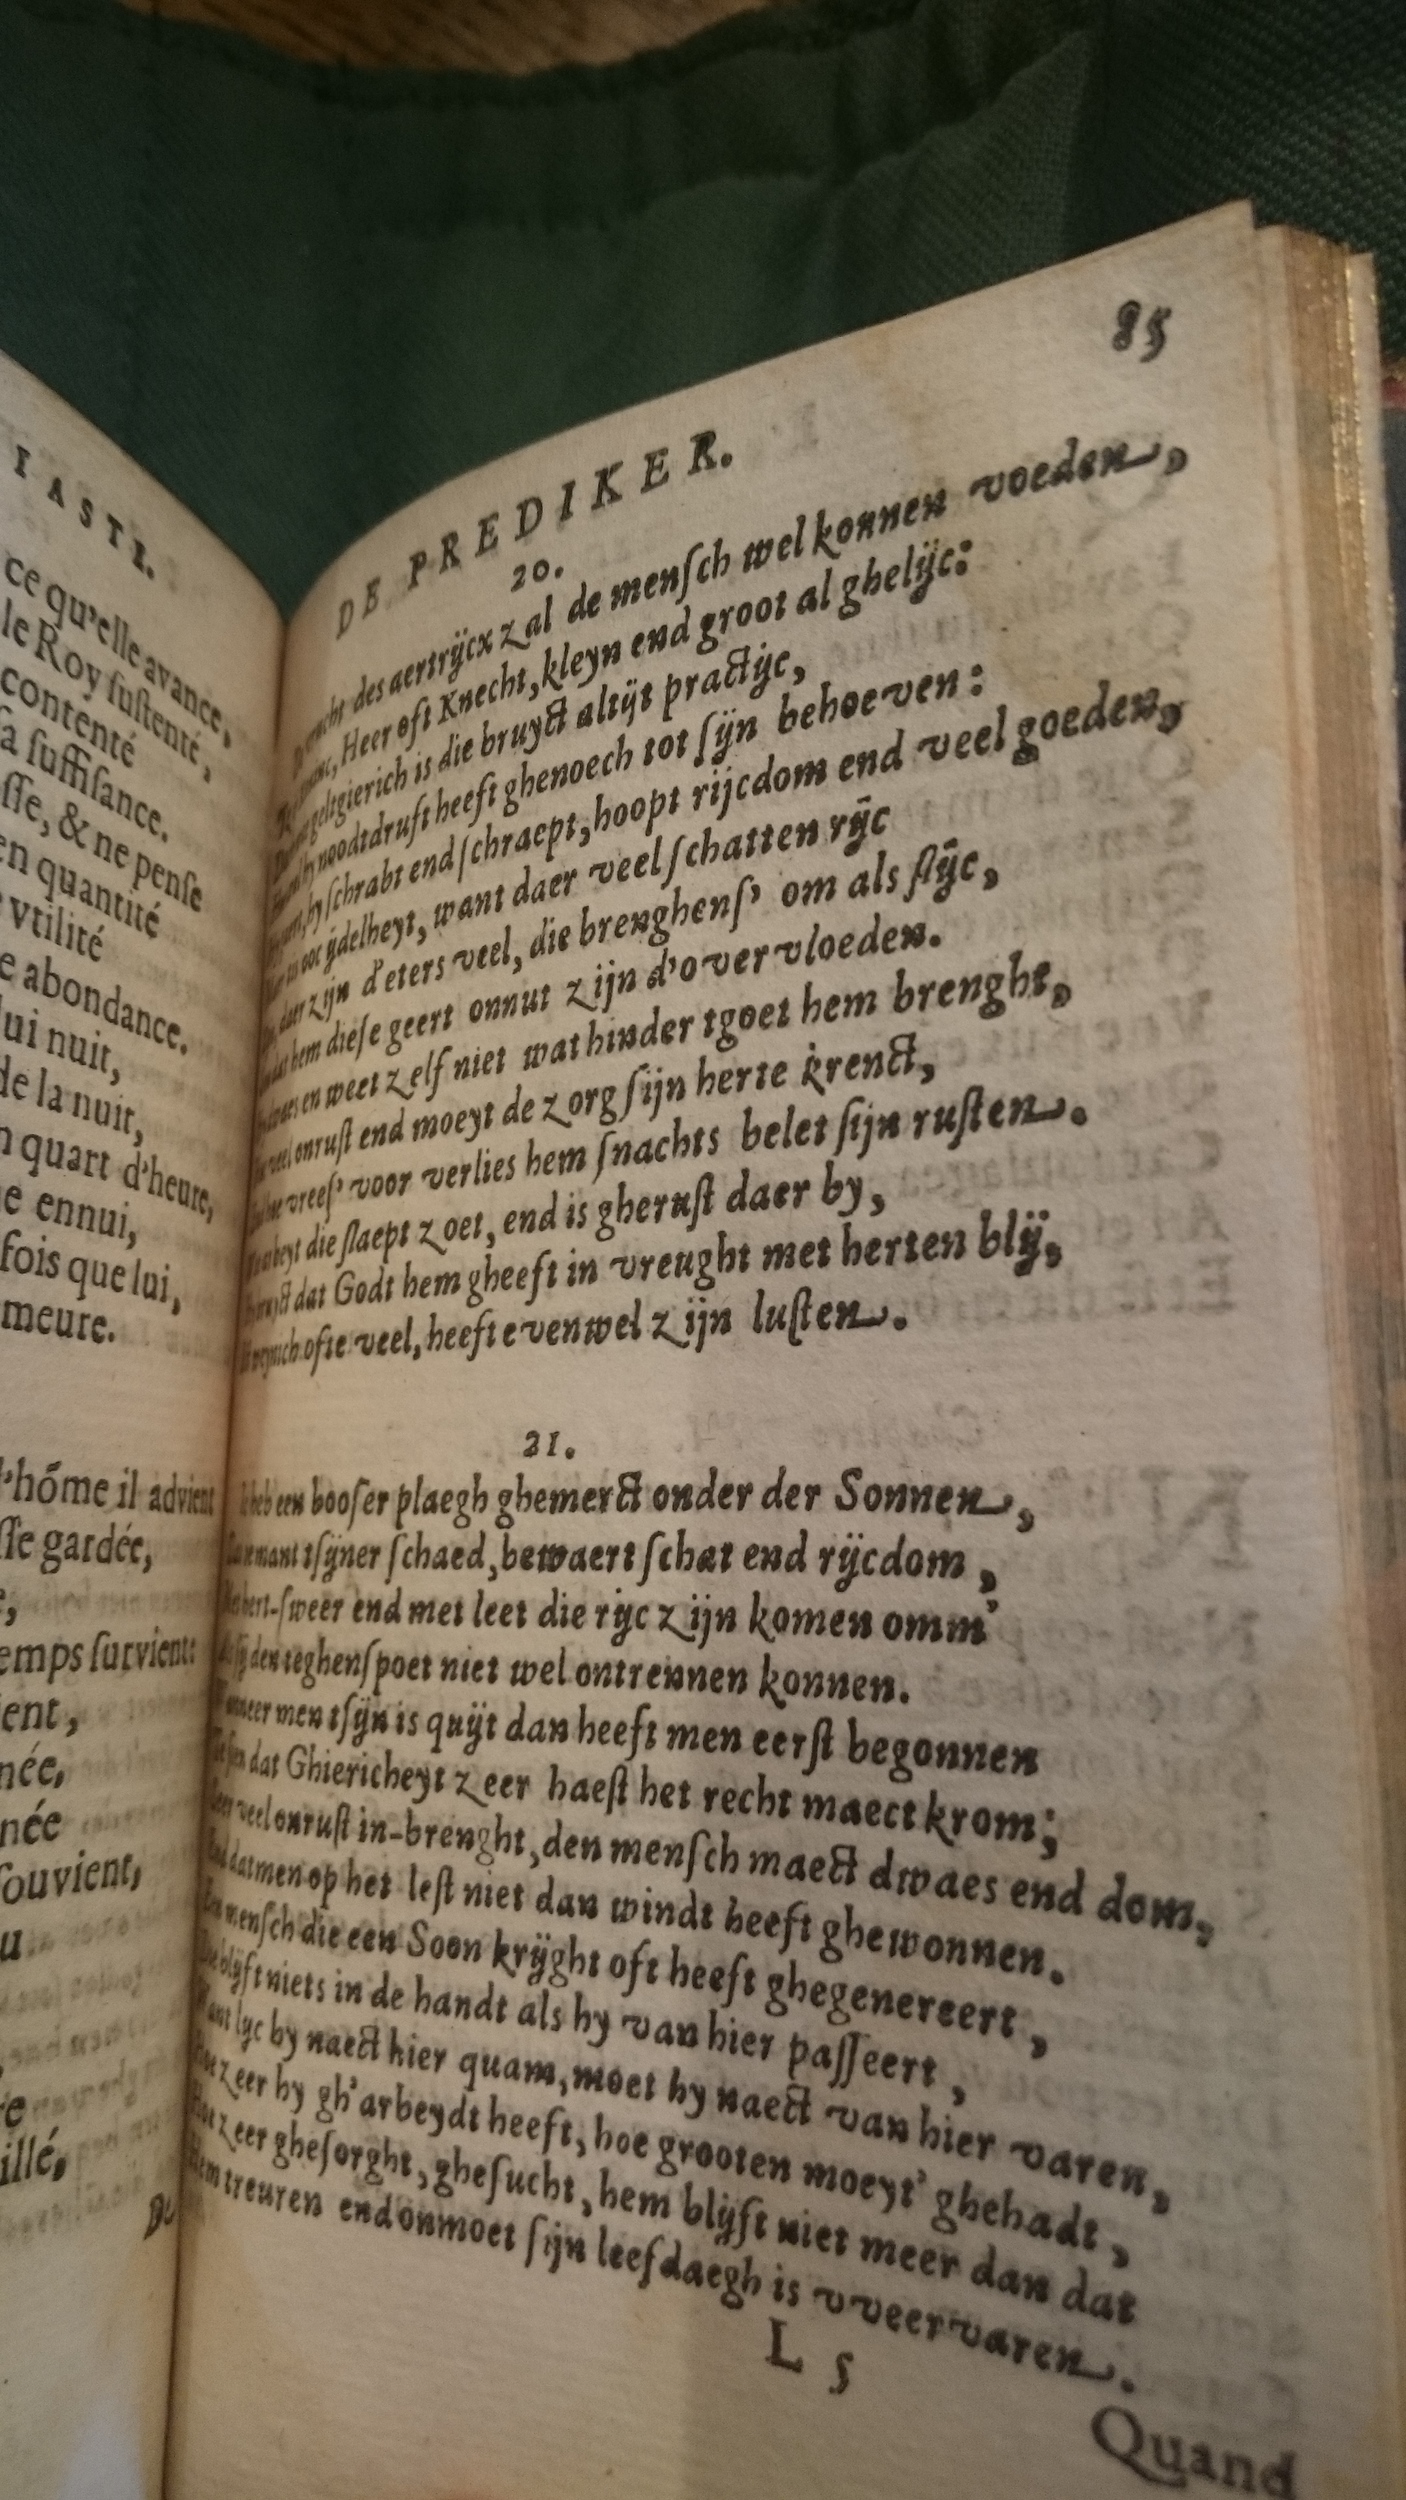 IASTE.
ce qu'elle avance,
le Roy ſuſtenté,
contenté
ſa ſuffiſance.
ſſe, & ne penſe
en quantité
vtilité
e abondance.
lui nuit,
de la nuit,
n quart d'heure,
ennui,
fois que lui,
meure.
l'hõme il advient
ſſe gardée,
emps ſurvient:
ient,
née,
née
ſouvient,
illé,
85
DE PREDIKER.
20.
des aertrijcx zal de menſch wel konnen voeden,
Heer oft Knecht, kleyn end groot al ghelijc:
geltgierich is die bruyct altijt practijc,
noodtdruft heeft ghenoech tot ſijn behoeven:
hy ſchrabt end ſchraept, hoopt rijcdom end veel goeden,
ooc ijdelheyt, want daer veel ſchatten rijc
daer zijn d'eters veel, die brenghenſ' om als ſlijc,
hem dieſe geert onnut zijn d'overvloeden.
en weet zelf niet wat hinder tgoet hem brenght,
veel onruſt end moeyt de zorg ſijn herte krenct,
vreeſ' voor verlies hem ſnachts belet ſijn ruſten.
die ſlaept zoet, end is gheruſt daer by,
dat Godt hem gheeft in vreught met herten blij,
ofte veel, heeft evenwel zijn luſten.
21.
een booſer plaegh ghemerct onder der Sonnen,
tſijner ſchaed, bewaert ſchat end rijcdom,
hert-ſweer end met leet die rijc zijn komen omm'
den teghenſpoet niet wel ontrennen konnen.
men tſijn is quijt dan heeft men eerſt begonnen
dat Ghiericheyt zeer haeſt het recht maect krom;
veel onruſt in-brenght, den menſch maect dwaes end dom,
datmen op het leſt niet dan windt heeft ghewonnen.
menſch die een Soon krijght oft heeft ghegenereert,
blijft niets in de handt als hy van hier paſſeert,
Want lijc hy naect hier quam, moet hy naect van hier varen,
Hoe zeer hy gh'arbeydt heeft, hoe grooten moeyt' ghehadt,
Hoe zeer gheſorght, gheſucht, hem blijft niet meer dan dat
Hem treuren end onmoet ſijn leefdaegh is vveervaren.
L 5
Quand